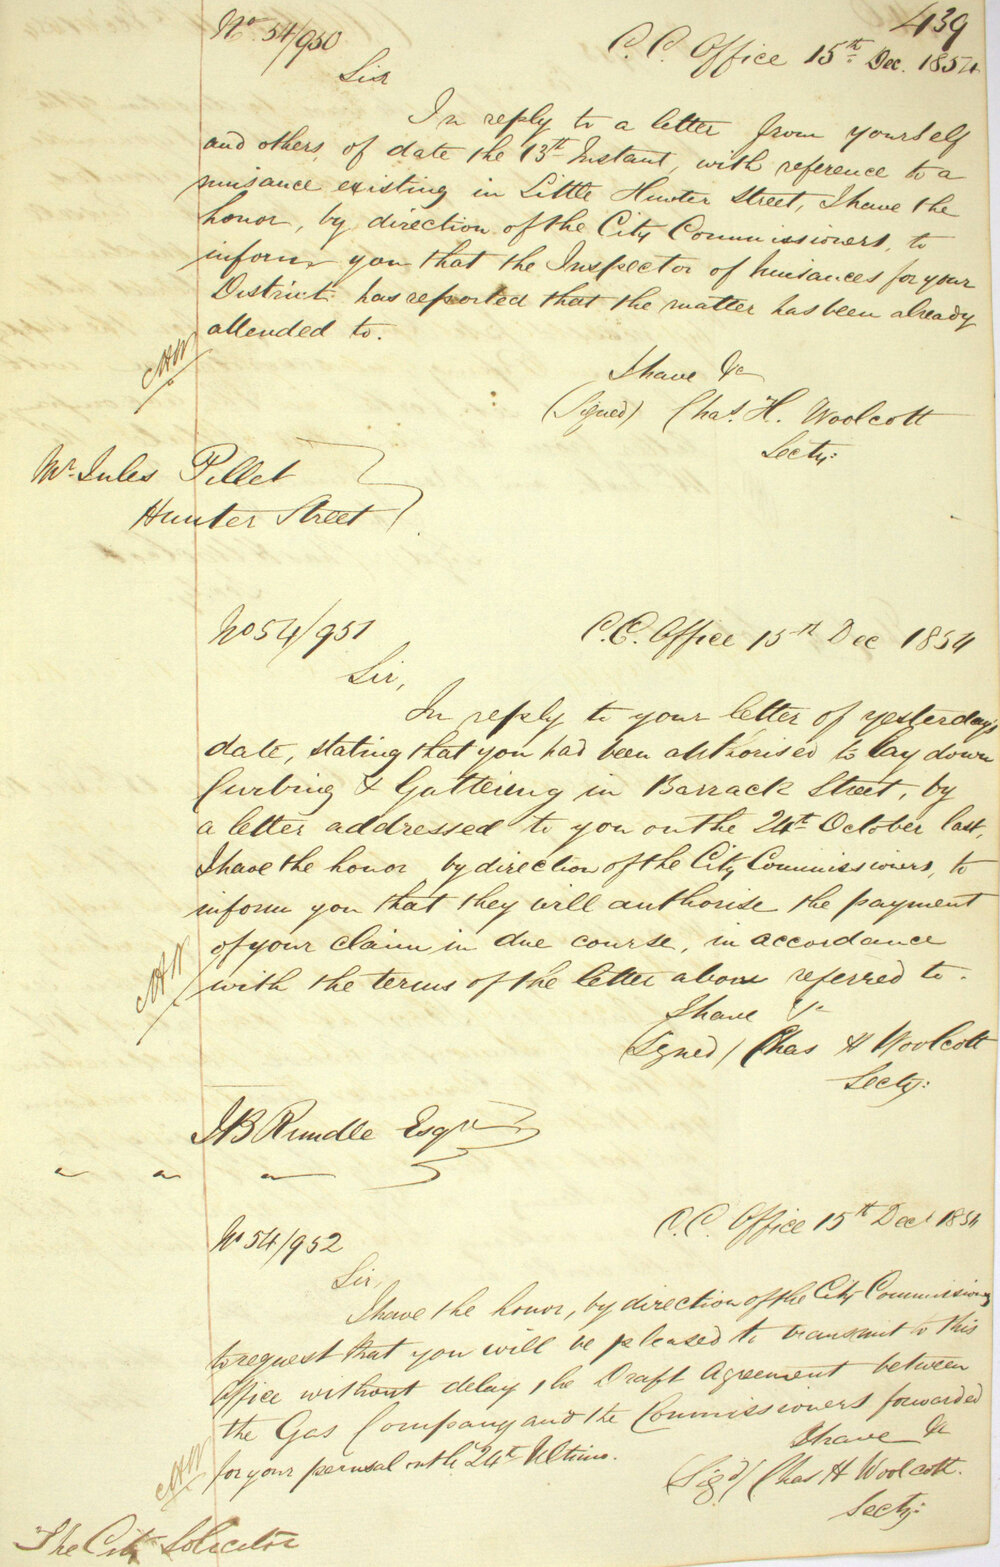 439
No. 54/950
C. C. Office 15th Dec. 1854
Sir
In reply to a letter from yourself
and others, of date the 13th Instant, with reference to a
nuisance existing in Little Hunter Street, I have the
honor, by direction of the City Commissioners, to
inform you that the Inspector of Nuisances for your
District has reported that the matter has been already
attended to.
I have &c
(Signed) Chas. H. Woolcott
Secty:
Mr. Jules Pillet
Hunter Street
No 54/951
C. C. Office 15th Dec 1854
Sir,
In reply to your letter of yesterday's
date, stating that you had been authorised to lay down
Curbing & Guttering in Barrack Street, by
a letter addressed to you on the 24th October last,
I have the honor by direction of the City Commissioners, to
inform you that they will authorise the payment
of your claim in due course, in accordance
with the terms of the letter above referred to.
I have &c
(Signed) Chas H Woolcott
Secty:
J B Rundle Esqre
No 54/952
C. C. Office 15th Dec 1854
Sir,
I have the honor, by direction of the City Commissioners
to request that you will be pleased to transmit to this
Office without delay, the Draft Agreement between
the Gas Company and the Commissioners forwarded
for your perusal on the 24th Ultimo.
I have &c
(Sigd) Chas H Woolcott.
Secty:
The City Solicitor